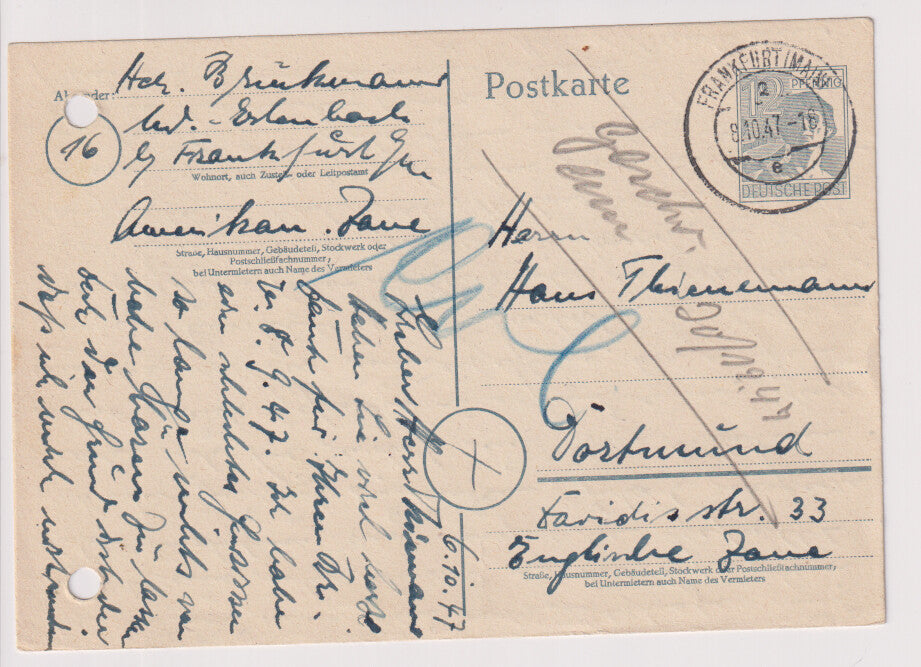 Absender:
Hch. Brinkmann
Nd.-Erlenbach
16
b/ Frankfurt
Wohnort, auch Zustell- oder Leitpostamt
Amerikan. Zone
Straße, Hausnummer, Gebäudeteil, Stockwerk oder
Postschließfachnummer,
bei Untermietern auch Name des Vermieters
Postkarte
FRANKFURT (MAIN)
2
8.10.47.-18
e
12 PFENNIG
DEUTSCHE POST
Herrn
Hans Thienemann
Dortmund
str. 33
Englische Zone
Straße, Hausnummer, Gebäudeteil, Stockwerk oder Postschließfachnummer,
bei Untermietern auch Name des Vermieters
6.10.47
Lieber Herr Thienemann
haben Sie recht herzl.
Dank für Ihren Br.
v. 8.9.47. Ich habe
ein schlechtes Gewissen
so lange nichts von
mir hören zu lassen
der Grund
daß ich